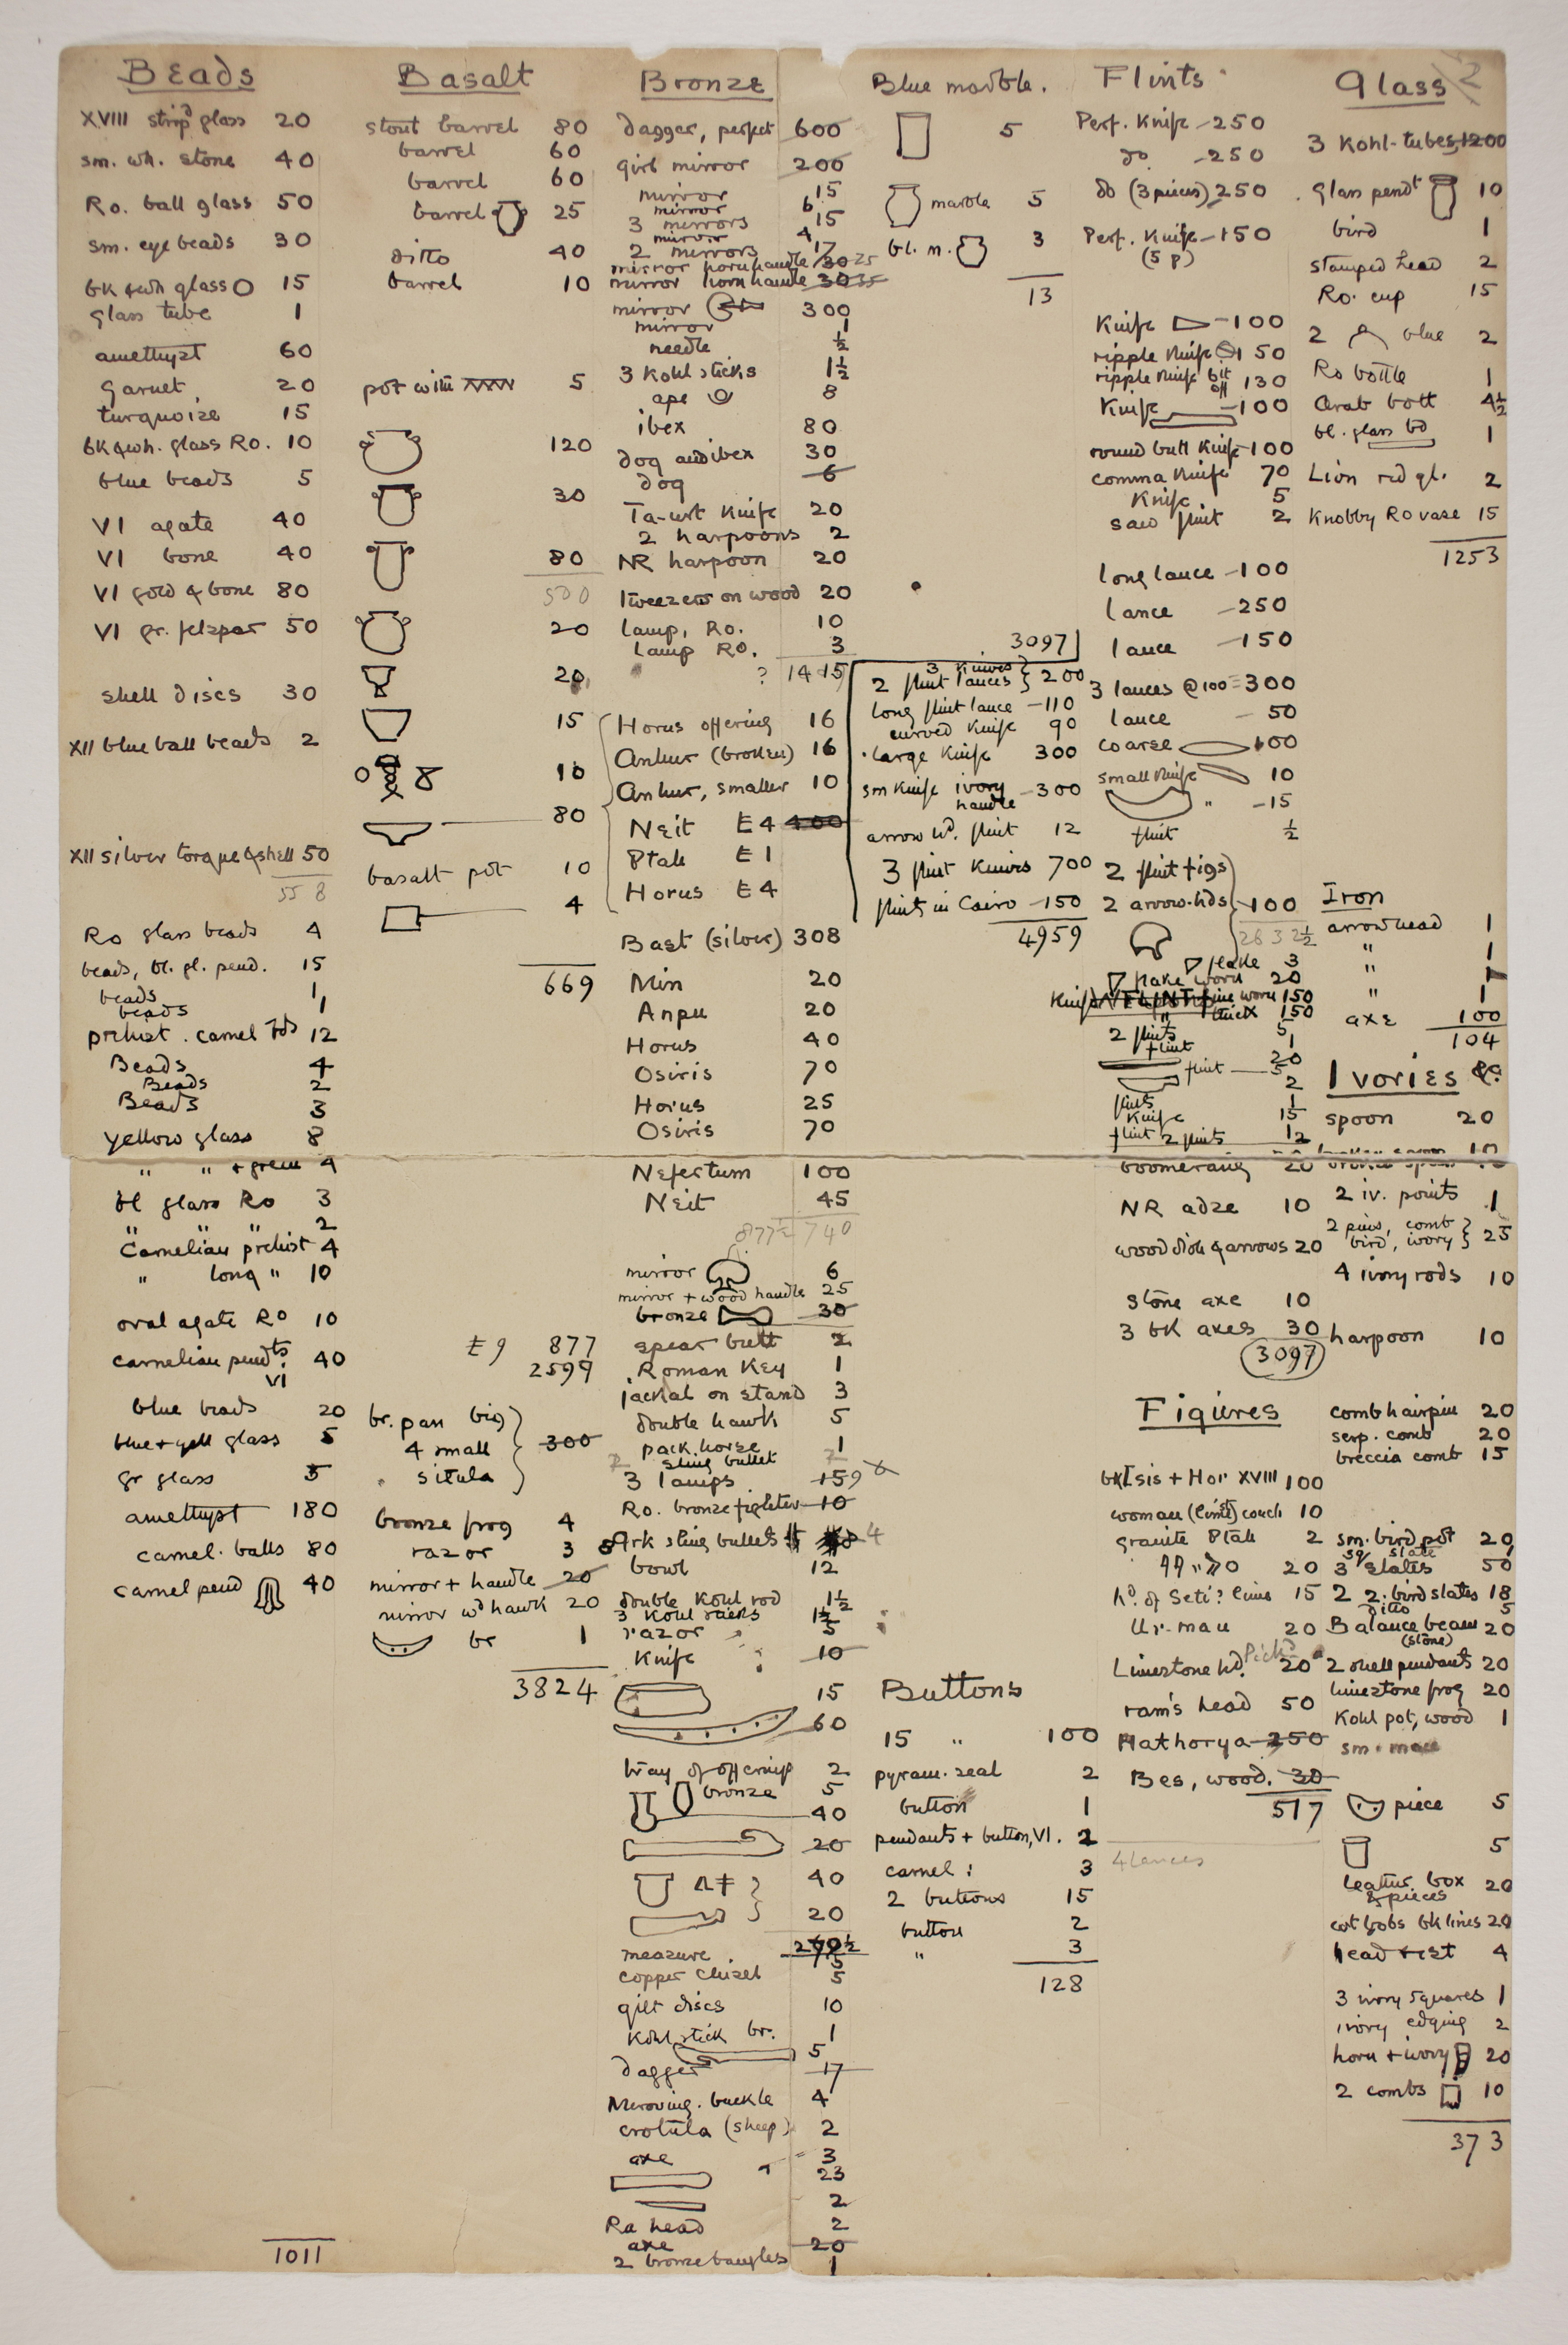 Beads
XVIII strip'd glass 20
sm. wh. stone 40
Ro. ball glass 50
sm. eye beads 30
bk & wh glass 15
glass tube 1
amethyst 60
garnet 20
turquoise 15
bk & wh. glass Ro. 10
blue beads 5
VI agate 40
VI bone 40
VI gold & bone 80
VI gr. felspar 50
shell discs 30
XII blue ball beads 2
XII silver torque & shell 50
558
Ro glass beads 4
beads, bl. gl. pend. 15
beads 1
beads 1
prehist. carnel hds 12
Beads 4
Beads 2
Beads 3
yellow glass 8
" " + green 4
bl glass Ro 3
" " " 2
Carnelian prehist 4
" long " 10
oval agate Ro 10
carnelian pendts VI 40
blue beads 20
blue + yell glass 5
gr glass 5
amethyst 180
carnel. balls 80
carnel pend 40
1011
Basalt
stout barrel 80
barrel 60
barrel 60
barrel 25
ditto 40
barrel 10
pot with 5
120
30
80
500
20
20
15
10
80
basalt pot 10
4
669
£9 877
2599
br. pan big
4 small 300
situla
bronze frog 4
razor 3
mirror + handle 20
mirror wd hawk 20
br 1
3824
Bronze
dagger, perfect 600
girl mirror 200
mirror 15
mirror 6
3 mirrors 15
mirror 4
2 mirrors 17
mirror horn handle 30 25
mirror horn handle 30 35
mirror 300
mirror 1
needle ½
3 Kohl sticks 1½
ape 8
ibex 80
dog and ibex 30
dog 6
Ta-urt Knife 20
2 harpoons 2
NR harpoon 20
Tweezers on wood 20
lamp, Ro. 10
lamp RO. 3
? 1415
Horus offering 16
Anhur (broken) 16
Anhur, smaller 10
Neit £4 400
Ptah £1
Horus £4
Bast (silver) 308
Min 20
Anpu 20
Horus 40
Osiris 70
Horus 25
Osiris 70
Nefertum 100
Neit 45
877½ 740
mirror 6
mirror + wood handle 25
bronze 30
spear butt 2
Roman Key 1
jackal on stand 3
double hawk 5
pack horse 1
2 sling bullet 2
3 lamps 159
Ro. bronze fighter 10
Grk sling bullets 4
bowl 12
double Kohl rod 1½
3 Kohl sticks 1½
razor 5
Knife 10
15
60
tray of offerings 2
bronze 5
40
20
40
20
measure 5
copper chisel 5
gilt discs 10
Kohl stick br. 1
5
dagger 17
Meroving. buckle 4
crotula (sheep) 2
axe 3
23
2
Ra head 2
axe 20
2 bronze bangles 1
Blue marble.
5
marble 5
bl. m. 3
13
3097
3 Knives
2 flint lances 200
long flint lance 110
curved Knife 90
large Knife 300
sm Knife ivory handle 300
arrow hd. flint 12
3 flint Knives 700
flints in Cairo 150
4959
Buttons
15 " 100
pyram. seal 2
button 1
pendants + button, VI. 2
carnel : 3
2 buttons 15
button 2
" 3
128
Flints
Perf. Knife 250
do 250
do (3 pieces) 250
Perf. Knife 150
(5 p)
Knife 100
ripple Knife 150
ripple Knife bit off 130
Knife 100
round butt Knife 100
comma Knife 70
Knife 5
saw flint 2
long lance 100
lance 250
lance 150
3 lances @ 100 = 300
lance 50
coarse 100
small Knife 10
" 15
flint ½
2 flint figs
2 arrow-hds 100
2632½
flake 3
flake worn 20
Knife fine worn 150
" thick 150
2 flints 5
flint 1
20
flint 5
2
flints 1
Knife 15
flint 2 flints 12
boomerang 20
NR adze 10
wood dish & arrows 20
stone axe 10
3 bk axes 30
3097
Figures
bk Isis + Hor XVIII 100
woman (limst) couch 10
granite Ptah 2
20
hd. of Seti? lims 15
Ur-mau 20
Limestone hd. 20
ram's head 50
Hathorya 250
Bes, wood. 30
517
4 lances
Glass 2
3 Kohl-tubes 1200
glass pendt 10
bird 1
stamped head 2
Ro. cup 15
2 blue 2
Ro bottle 1
Arab bott 4½
bl. glass bd 1
Lion red gl. 2
Knobby Ro vase 15
1253
Iron
arrowhead 1
" 1
" 1
" 1
axe 100
104
Ivories &c.
spoon 20
broken spoon 10
2 iv. points 1
2 pins, comb
bird, ivory 25
4 ivory rods 10
harpoon 10
comb hairpin 20
serp. comb 20
breccia comb 15
sm. bird pot 20
sq. slate
3 slates 50
2 2-bird slates 18
ditto 5
Balance beam 20
(stone)
2 shell pendants 20
limestone frog 20
Kohl pot, wood 1
sm. mace
piece 5
5
leather box 20
& pieces
cut bobs bk lines 20
head rest 4
3 ivory squares 1
ivory edging 2
horn + ivory 20
2 combs 10
373